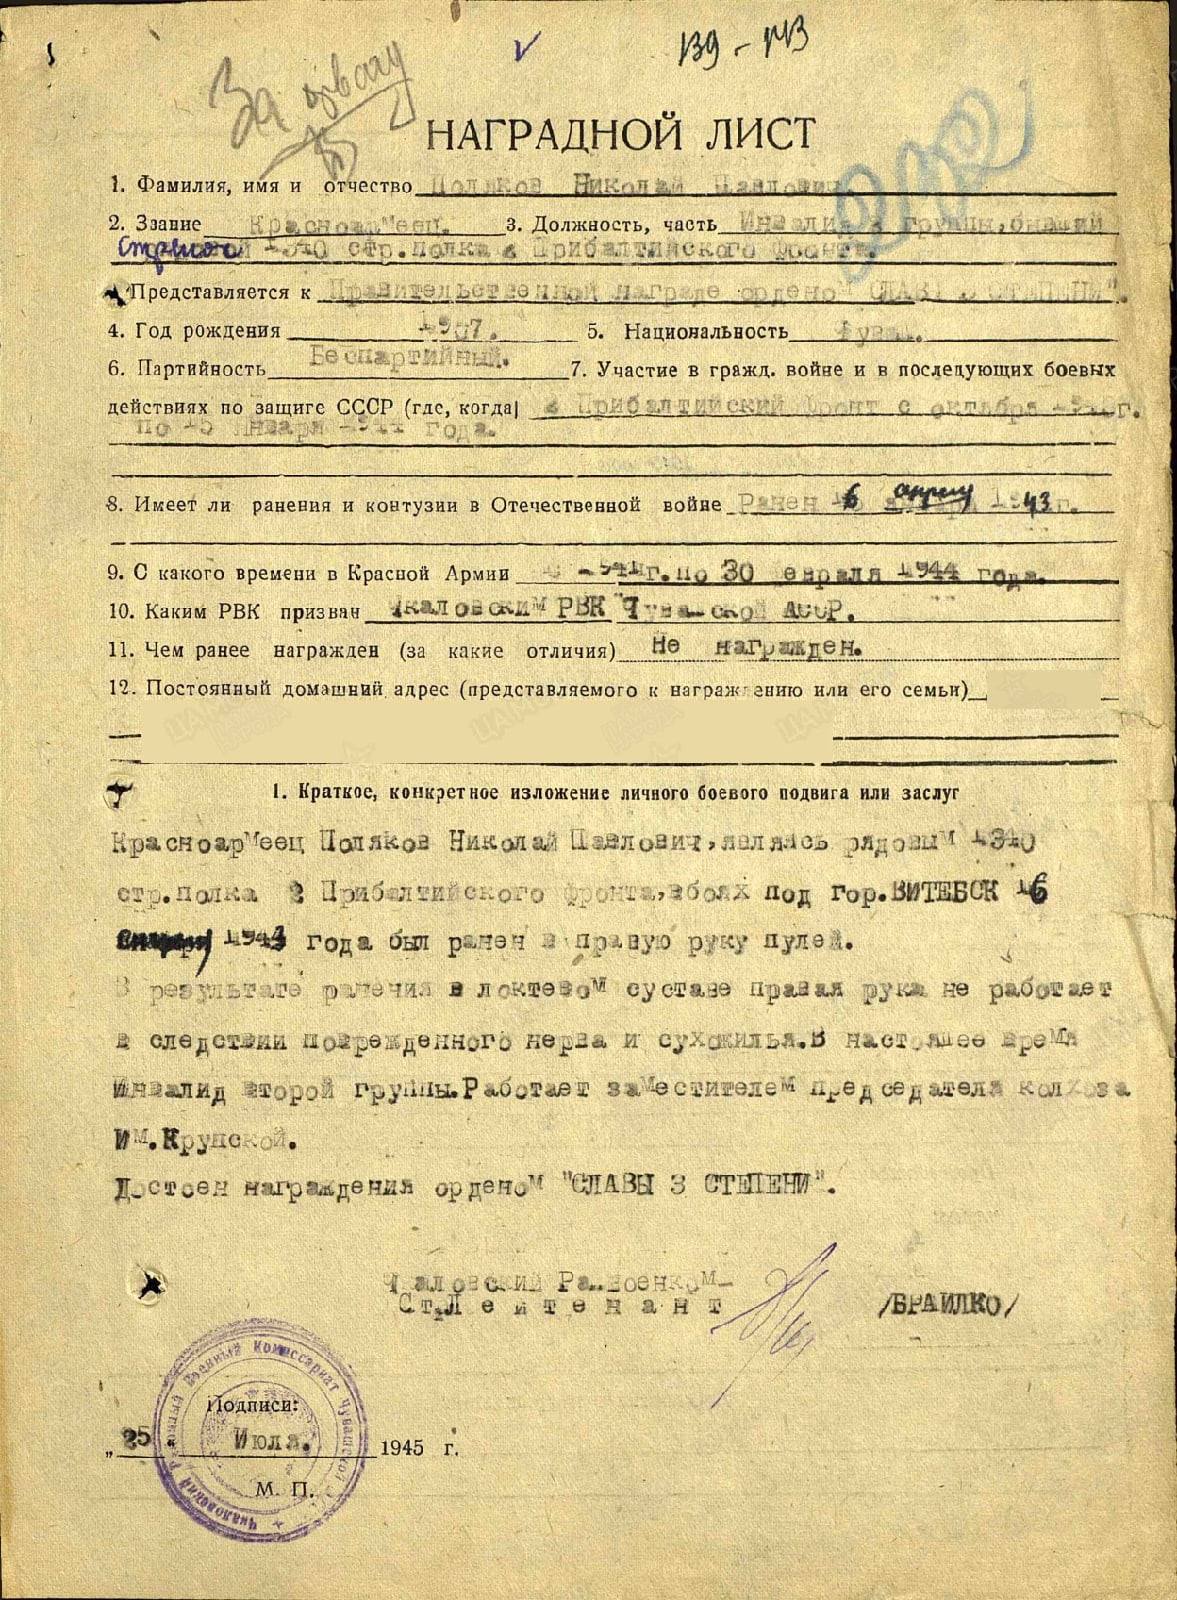 139 - 143
За отвагу
НАГРАДНОЙ ЛИСТ
1. Фамилия, имя и отчество Поляков Николай Павлович
2. Звание Красноармеец. 3. Должность, часть Инвалид 2 группы, бывший
1340 стр.полка 2 Прибалтийского Фронта.
Представляется к Правительственной награде орденом СЛАВЫ 3 СТЕПЕНИ".
4. Год рождения 1907. 5. Национальность Чуваш.
6. Партийность Беспартийный. 7. Участие в гражд. войне и в последующих боевых
действиях по защите СССР (где, когда) 2 Прибалтийский фронт с октября г.
по 15 января 1944 года.
8. Имеет ли ранения и контузии в Отечественной войне Ранен 16 1943 г.
9. С какого времени в Красной Армии 1941г. по 30 февраля 1944 года.
10. Каким РВК призван Чкаловским РВК Чувашской АССР.
11. Чем ранее награжден (за какие отличия) Не награжден.
12. Постоянный домашний адрес (представляемого к награждению или его семьи)
1. Краткое, конкретное изложение личного боевого подвига или заслуг
Красноармеец Поляков Николай Павлович, являясь рядовым 1340
стр.полка 2 Прибалтийского фронта, в боях под гор.ВИТЕБСК 16
1943 года был ранен в правую руку пулей.
В результате ранения в локтевом суставе правая рука не работает
в следствии поврежденного нерва и сухожилья. В настоящее время
Инвалид второй группы. Работает заместителем председателя колхоза
Им.Крупской.
Достоен награждения орденом "СЛАВЫ 3 СТЕПЕНИ".
Чкаловский Райвоенком-
Ст.Лейтенант /БРАИЛКО/
Чкаловский Районный Военный Комиссариат Чувашской
Подписи:
„25 Июля. 1945 г.
М. П.